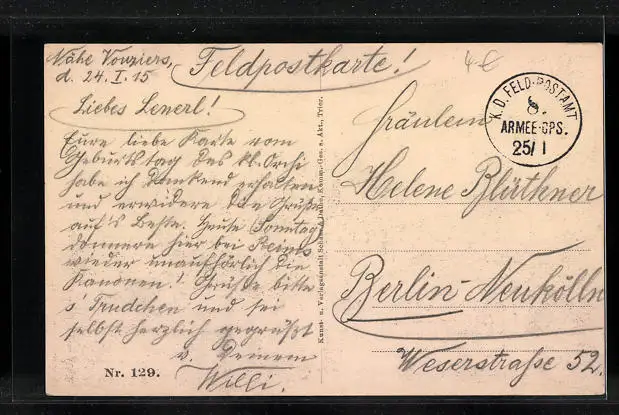 Nähe Vouziers,
d. 24. I. 15
Feldpostkarte!
4€
Liebes Lenerl!
Eure liebe Karte vom
Geburtstag des kl.
habe ich dankend erhalten
und erwidere die Grüße
auf's Beste. Heute Sonntag
donnern hier bei Reims
wieder unaufhörlich die
Kanonen! Grüße bitte
s' Trudchen und sei
selbst herzlich gegrüßt
v. Deinem
Willi.
Nr. 129.
Kunst- u. Verlagsanstalt Schaar & Dathe, Komm.-Ges. a. Akt., Trier.
K. D. FELD-POSTAMT
8.
ARMEE-CPS.
25/1
Fräulein
Helene Blüthner
Berlin-Neukölln
Weserstraße 52.